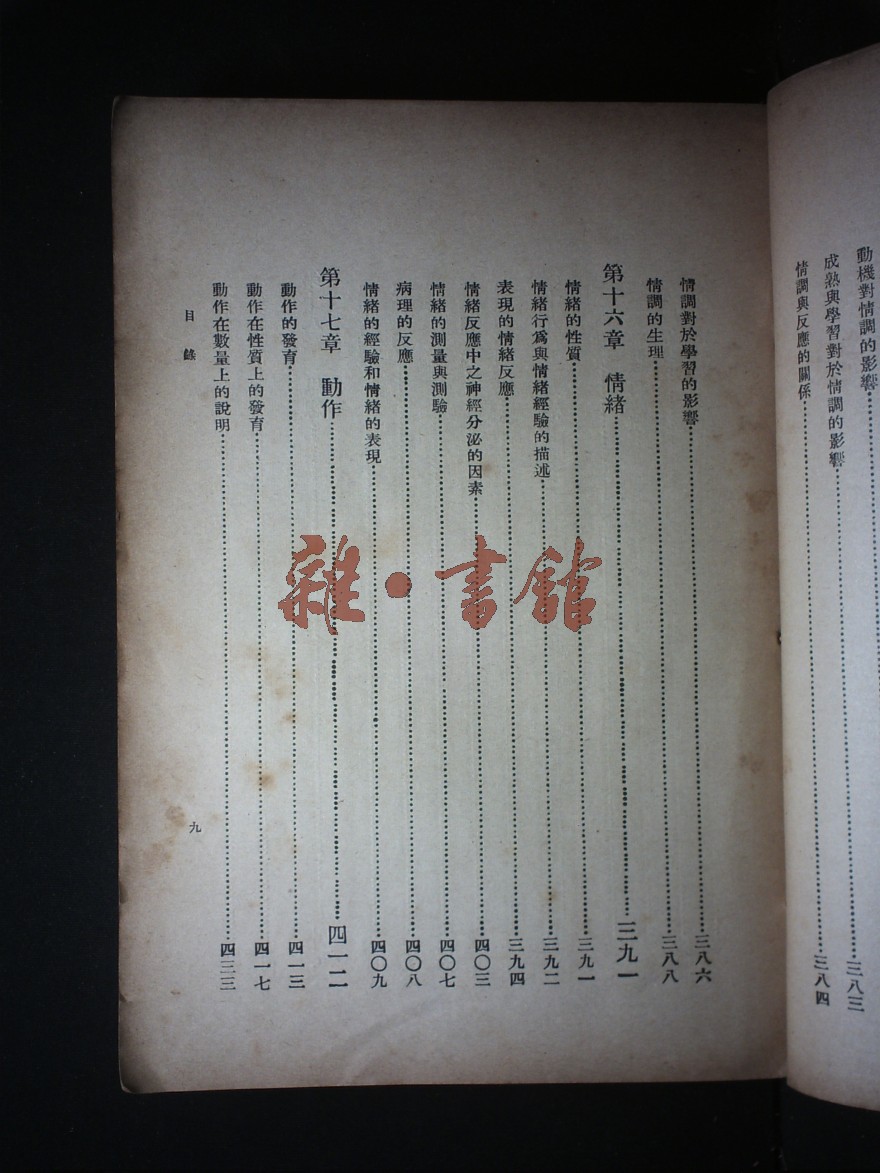 動機對情調的影響……三八三
成熟與學習對於情調的影響
情調與反應的關係……三八四
情調對於學習的影響……三八六
情調的生理……三八八
第十六章 情緒……三九一
情緒的性質……三九一
情緒行爲與情緒經驗的描述……三九二
表現的情緒反應……三九四
情緒反應中之神經分泌的因素……四〇三
情緒的測量與測驗……四〇七
病理的反應……四〇八
情緒的經驗和情緒的表現……四〇九
第十七章 動作……四一二
動作的發育……四一三
動作在性質上的發育……四一七
動作在數量上的說明……四三三
目錄
九
雜·書館